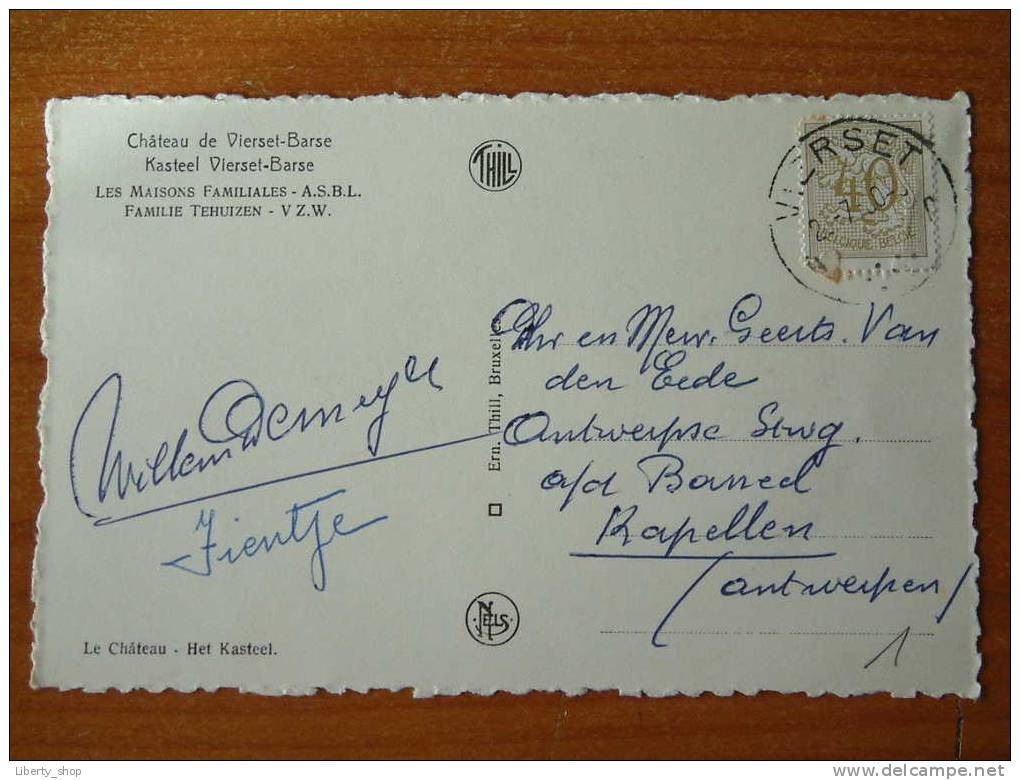 Château de Vierset-Barse
Kasteel Vierset-Barse
LES MAISONS FAMILIALES - A.S.B.L.
FAMILIE TEHUIZEN - V Z.W.
THILL
VIERSET
40
BELGIQUE-BELGIE
Ern. Thill, Bruxelles
Dhr en Mevr. Geerts. Van
den Eede
Antwerpse Stwg.
a/d Bareel
Kapellen
(Antwerpen)
Willem Demeyer
Fientje
NELS
Le Château - Het Kasteel.
1
Liberty_shop
www.delcampe.net